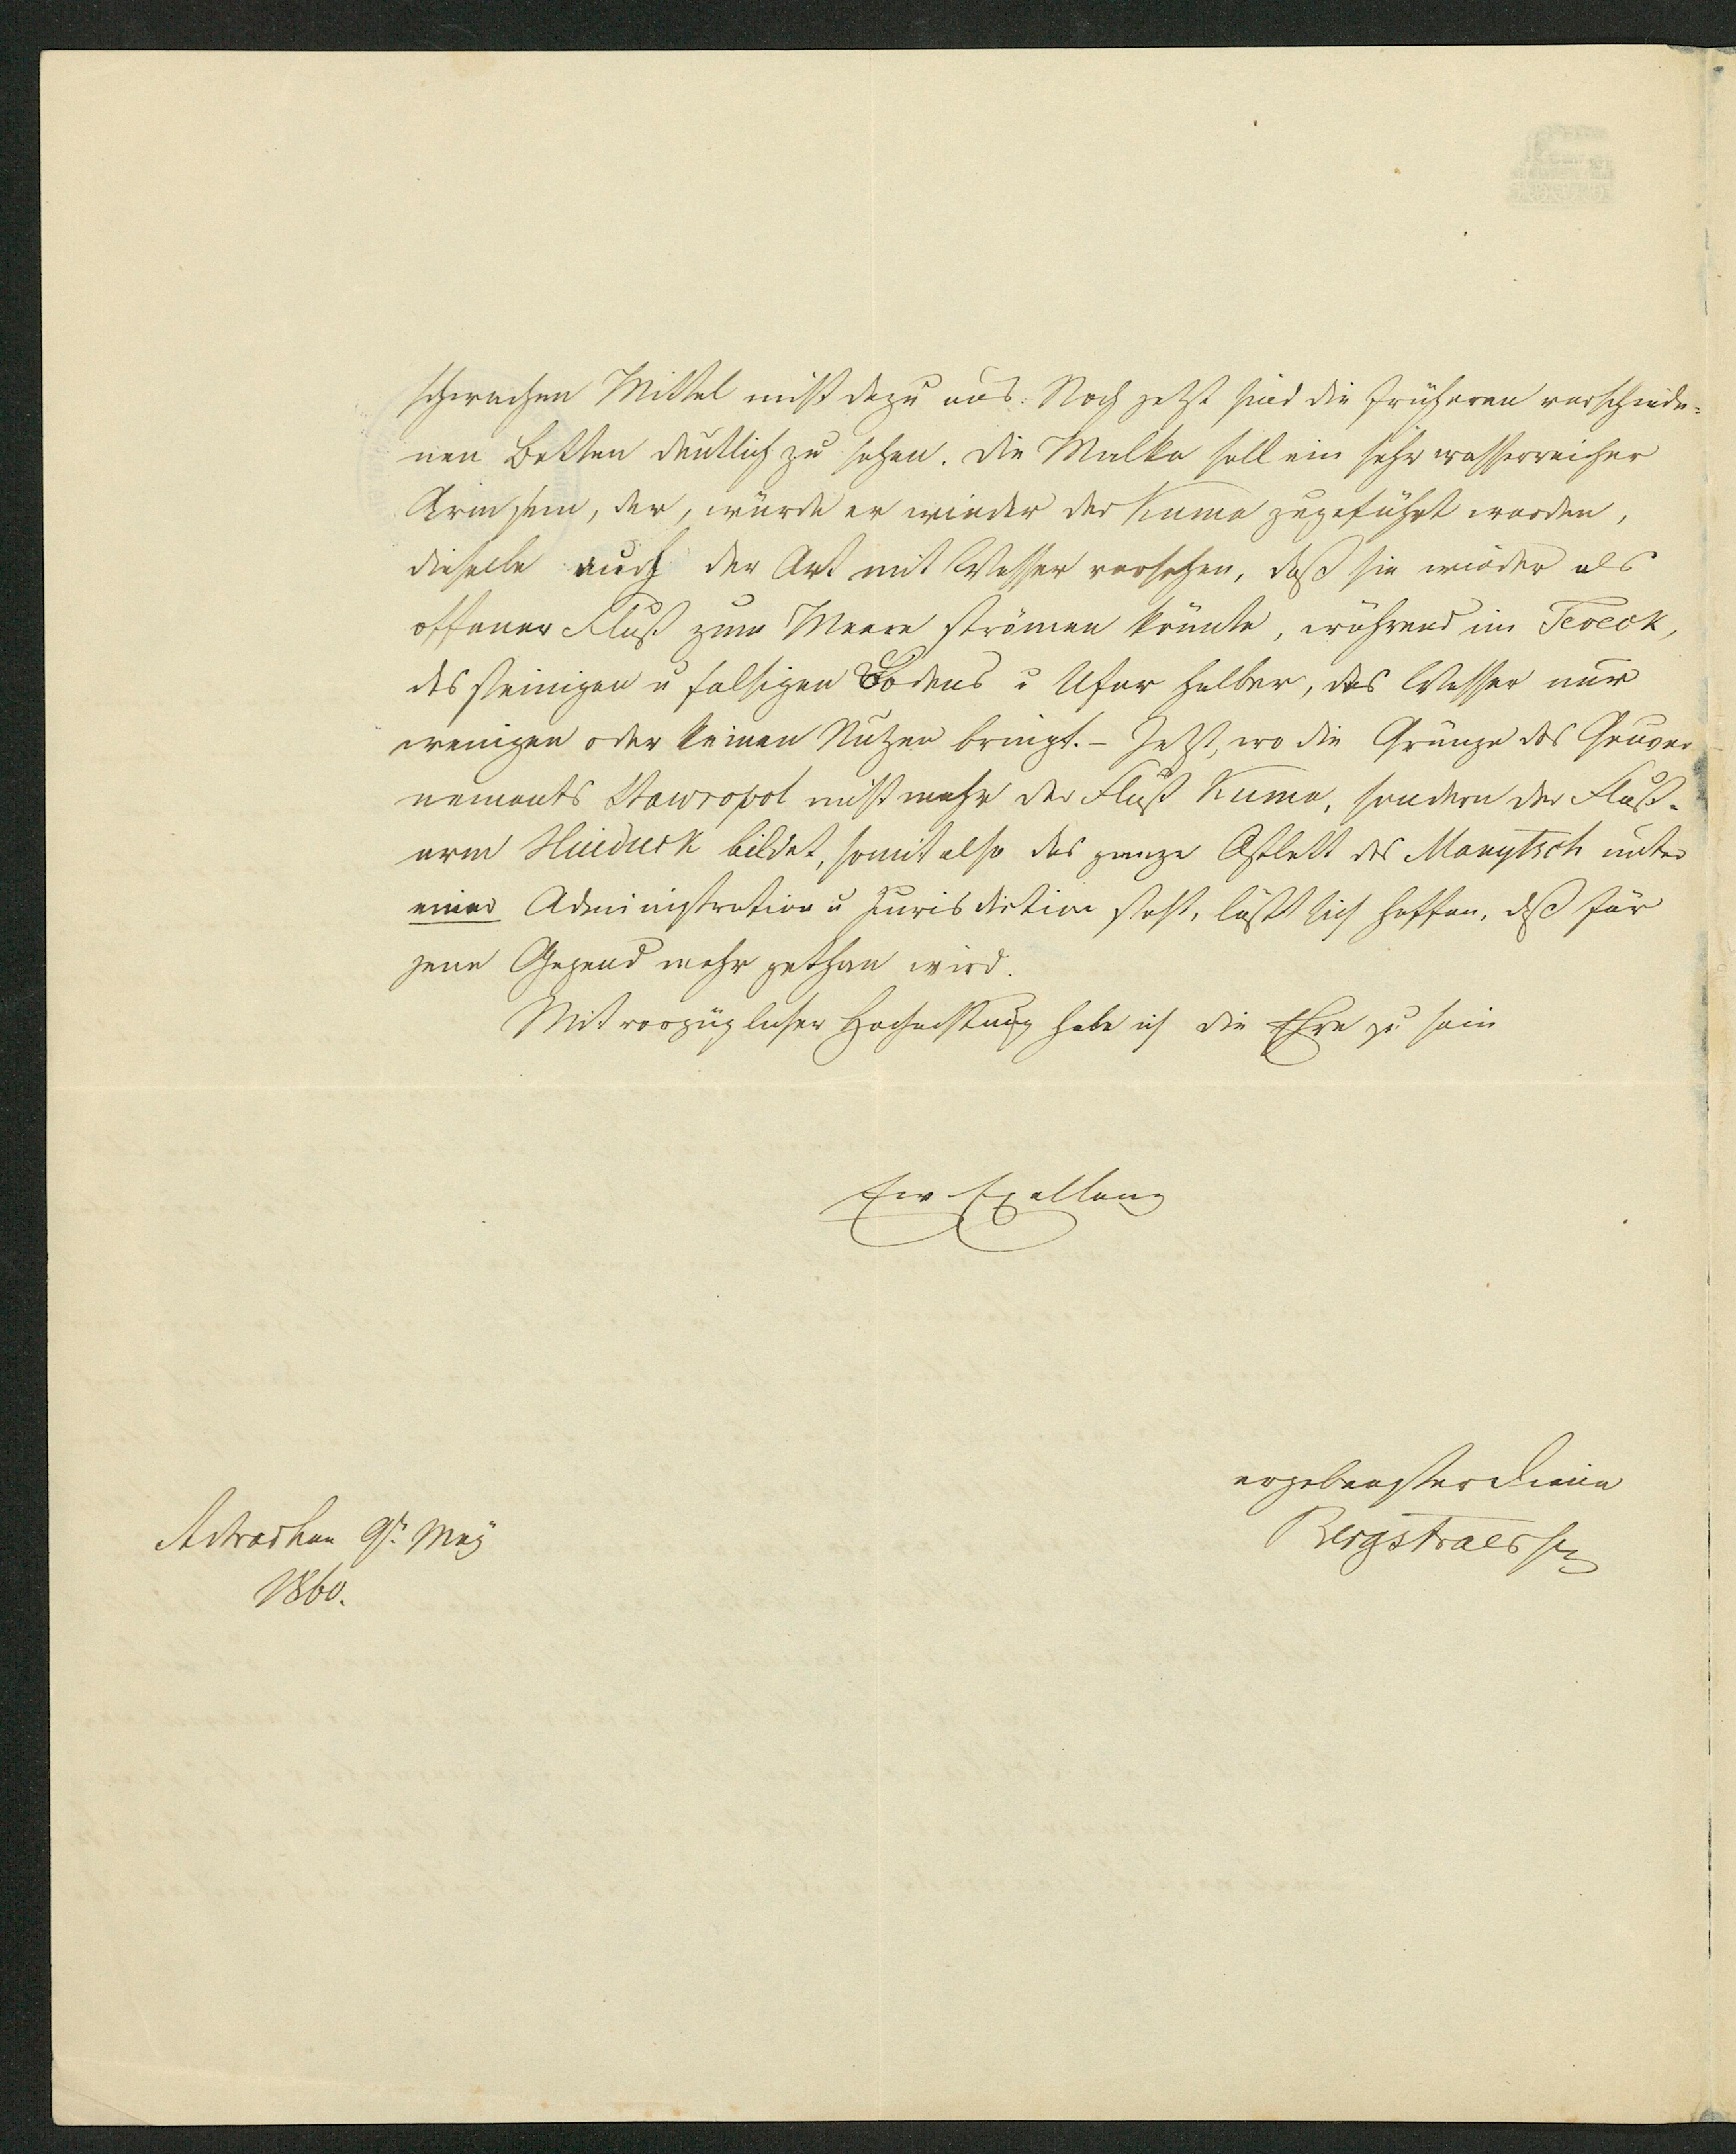 schwachen Mittel nicht dazu aus. Noch jetzt sind die früheren verschiede-
nen Betten deutlich zu sehen. Die Malka soll ein sehr wasserreicher
Arm sein, der, würde er wieder der Kuma zugeführt werden,
dieselbe auch der Art mit Wasser versehen, daß sie wieder als
offener Fluß zum Meere strömen könnte, während im Tereck,
des steinigen u felsigen Bodens u Ufer halber, das Wasser nur
wenigen oder keinen Nutzen bringt. – Jetzt, wo die Gränze des Gouver
nements Stawropol nicht mehr der Fluß Kuma, sondern der Fluß-
arm Huiduck bildet, somit also das ganze Ostbett des Manytsch unter
einer Administration u Jurisdiction steht, läßt sich hoffen, daß für
jene Gegend mehr gethan wird.
Mit vorzüglicher Hochachtung habe ich die Ehre zu sein
Ew Exellenz
ergebenster Diener
Bergstraesser
Astrachan 9t. May
1860.